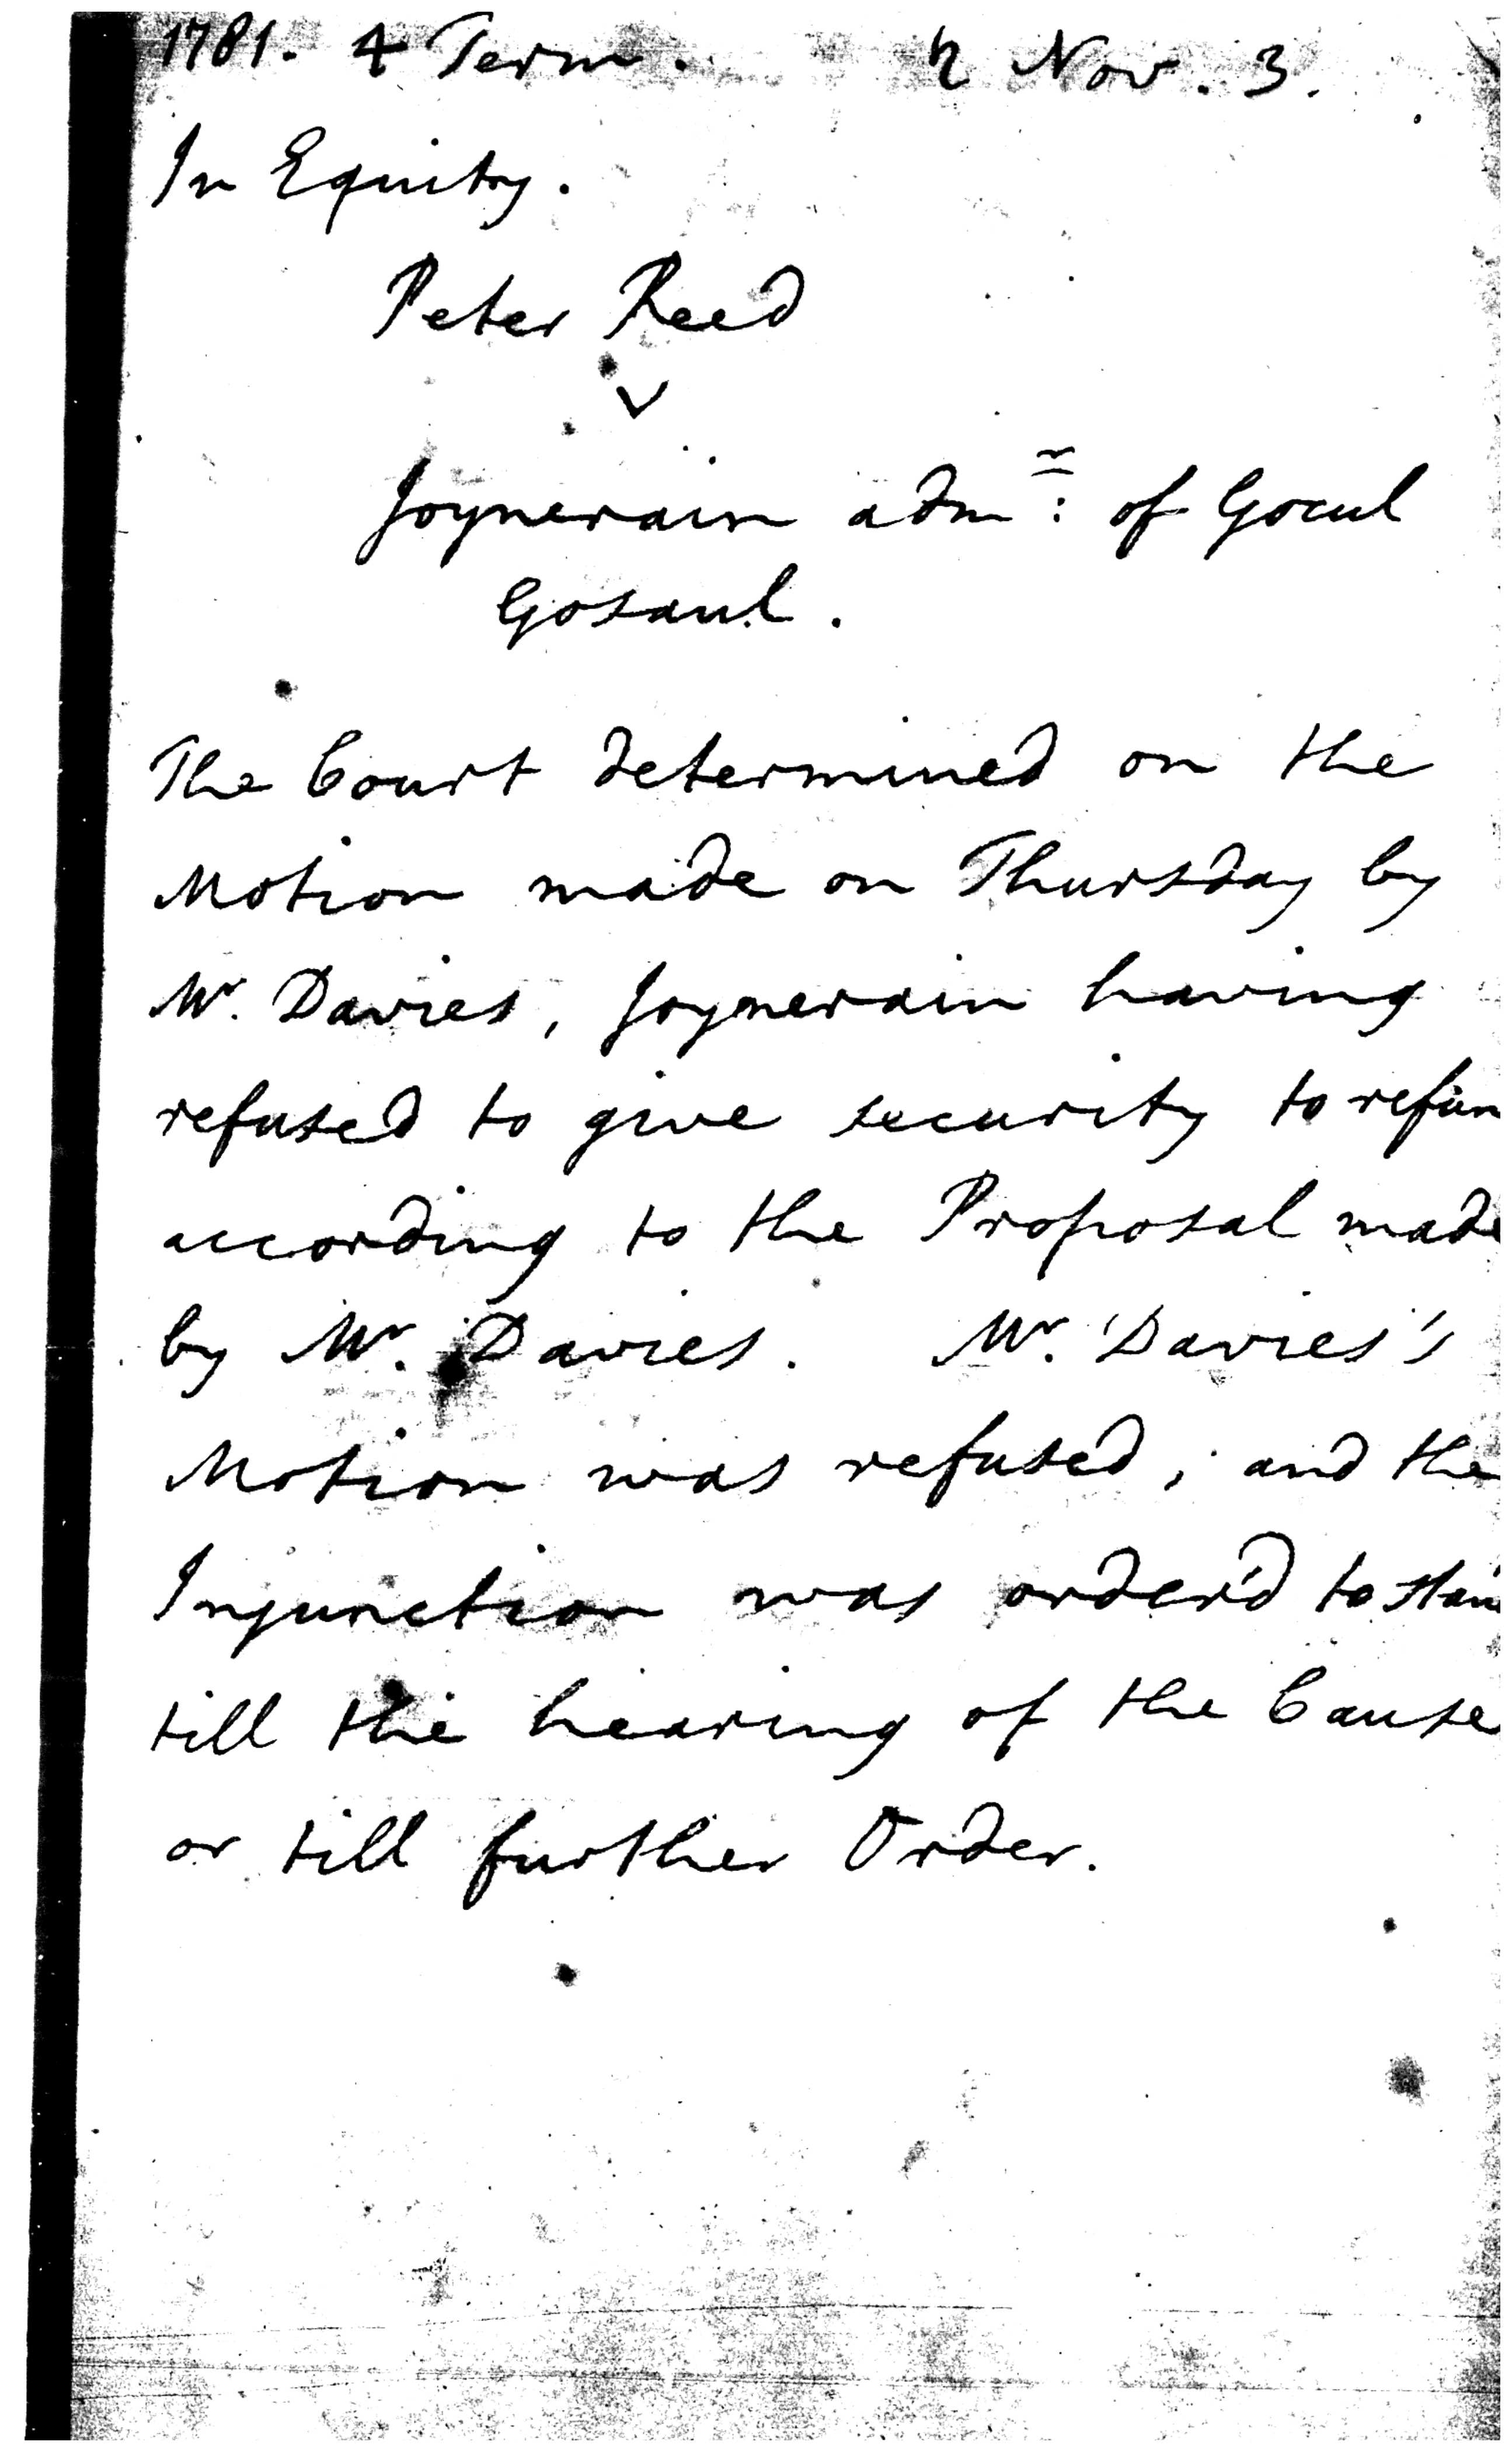 1781. 4 Term. ♄ Nov. 3.
In Equity.
Peter Reed
v
Joynerain adm^r: of Gocul
Gosaul.
The Court determined on the
Motion made on Thursday by
Mr. Davies, Joynerain having
refused to give security to refun
according to the Proposal made
by Mr. Davies. Mr. Davies's
Motion was refused; and the
Injunction was order'd to stan
till the hearing of the Cause
or till further Order.